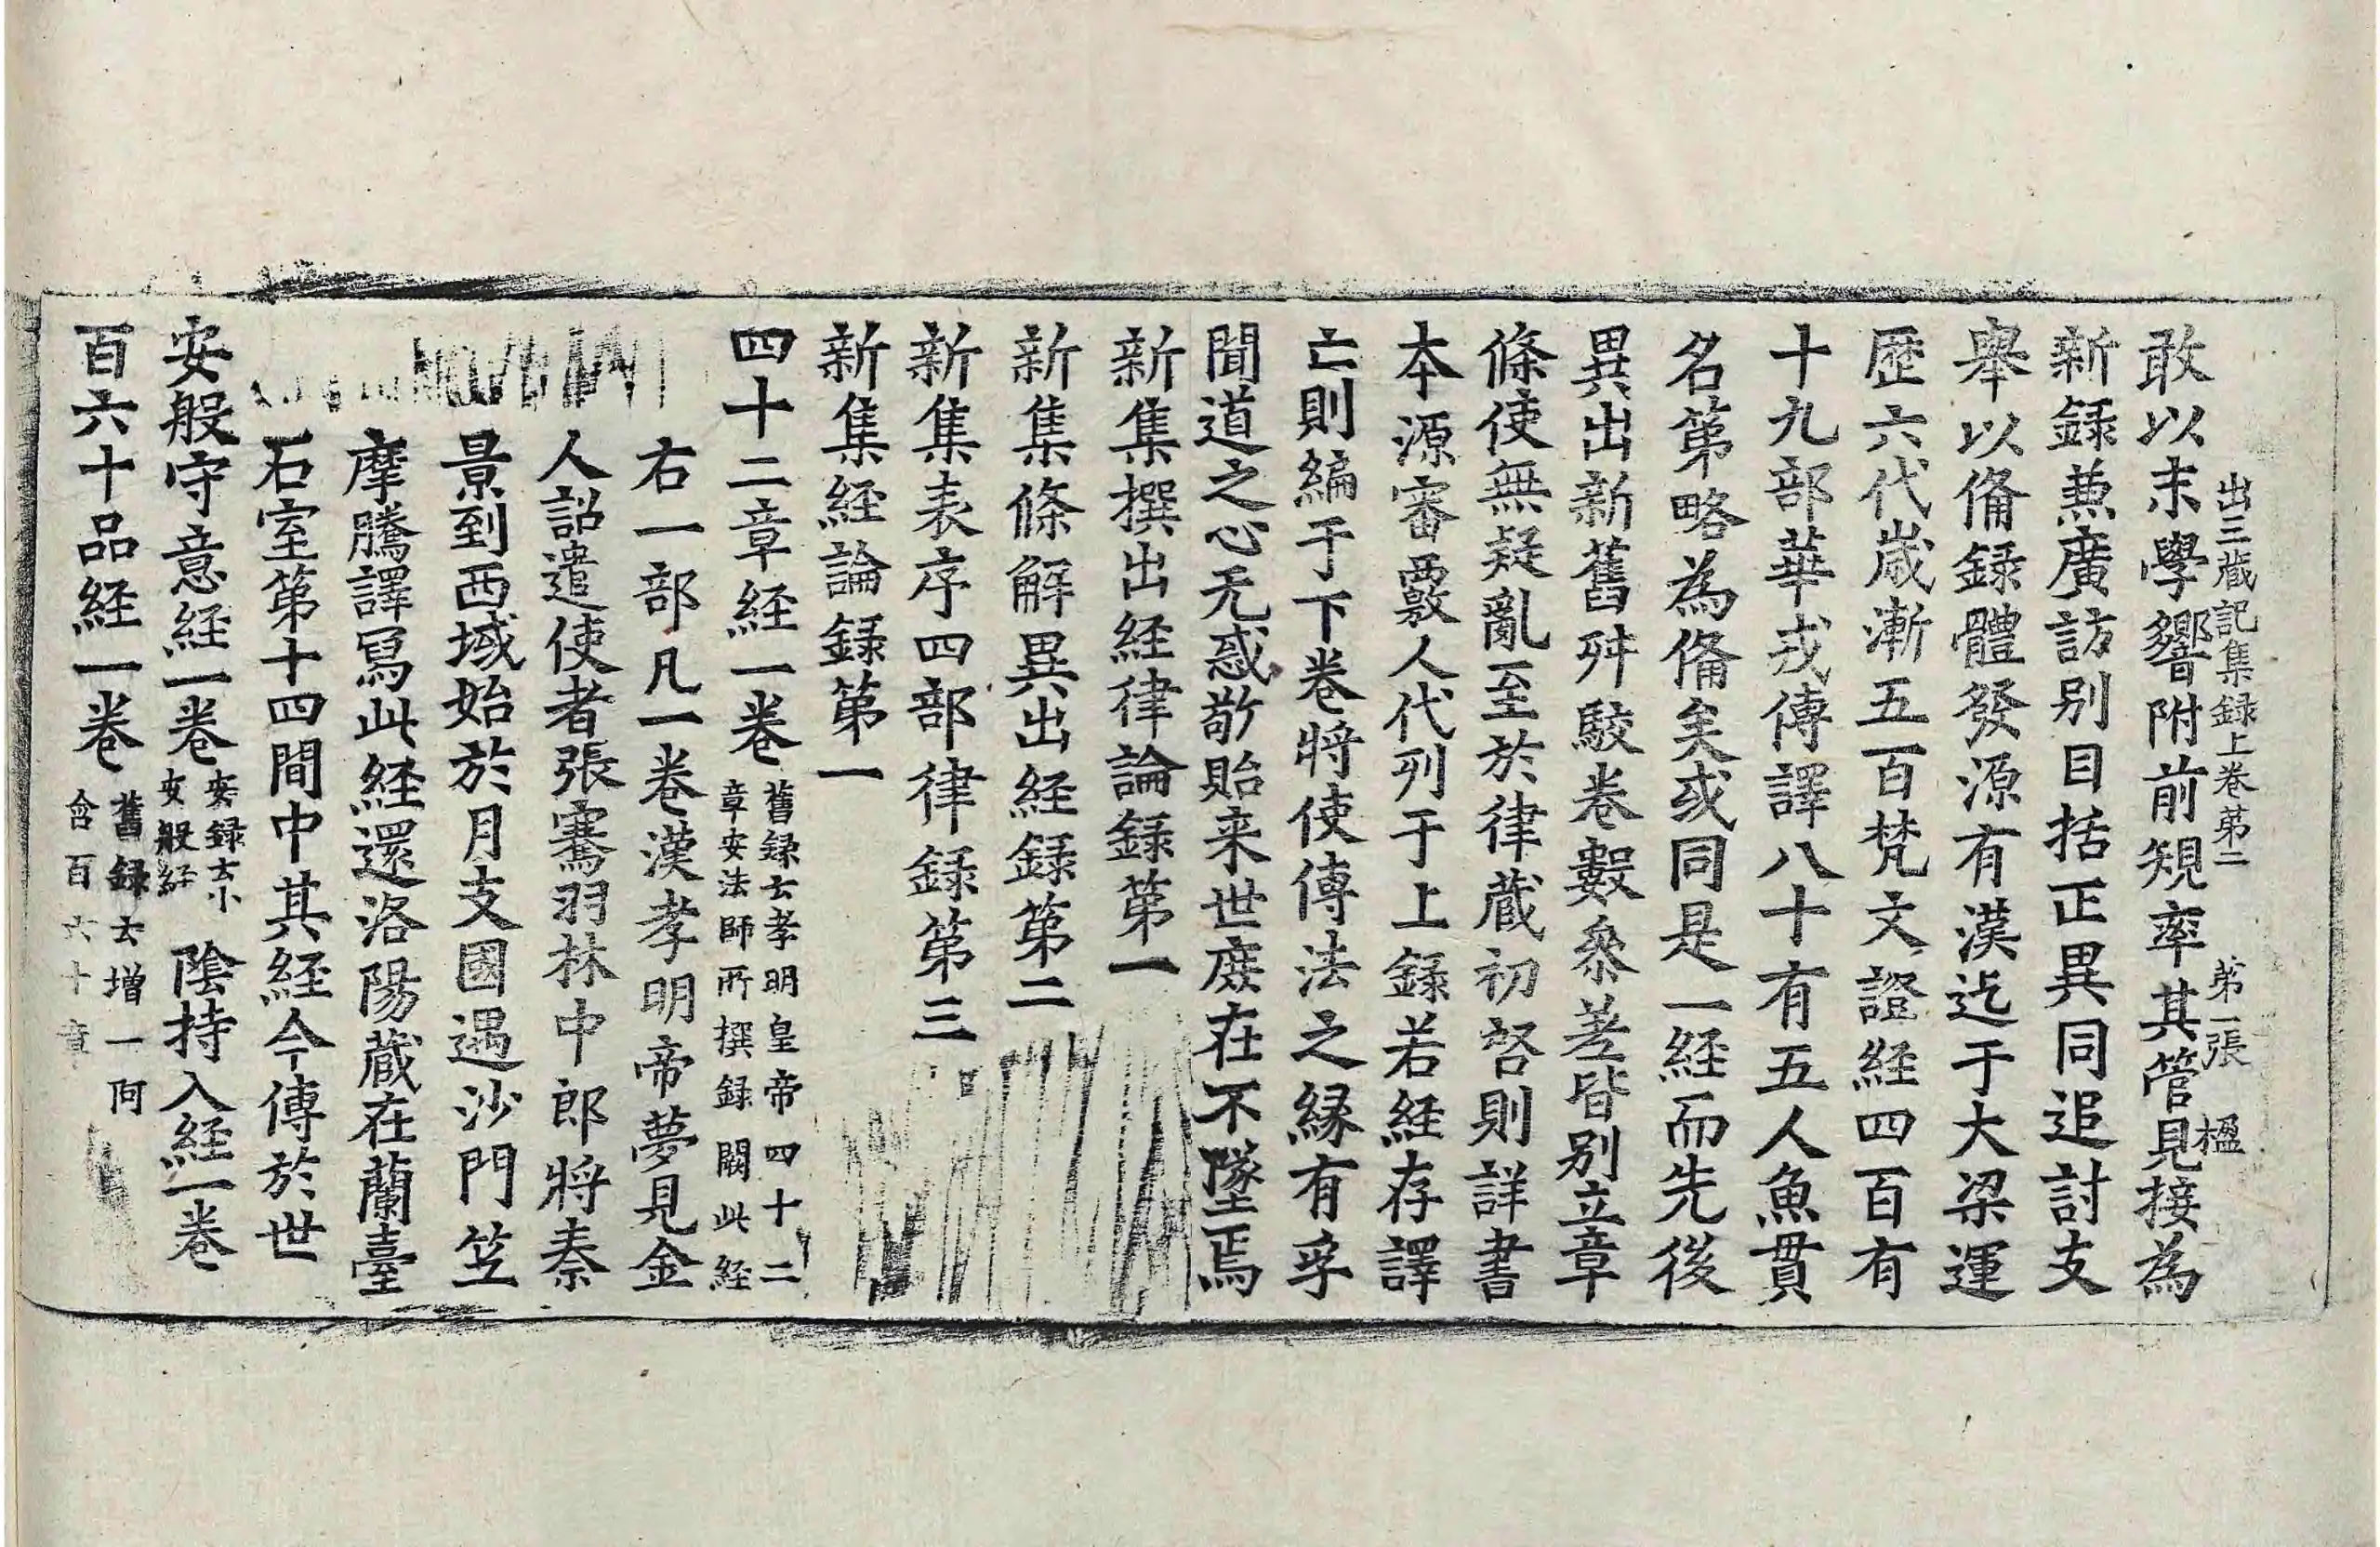 出三藏記集録上卷第二　第二張　楹
敢以末學響附前規率其管見接為
新録兼廣訪别目括正異同追討支
舉以俻録體發源有漢迄于大梁運
歷六代歲漸五百梵文證経四百有
十九部華戎傳譯八十有五人魚貫
名第略為俻矣或同是一経而先後
異出新舊舛駮卷數叅差皆别立章
條使無疑亂至於律藏初啓則詳書
本源審覈人代列于上録若経存譯
亡則編于下卷將使傳法之縁有孚
聞道之心无惑敬貽来世庶在不墜焉
新集撰出経律論録第一
新集條解異出経録第二
新集表序四部律録第三
新集経論録第一
四十二章経一卷舊録云孝明皇帝四十二
章安法師所撰録闕此経
右一部凡一卷漢孝明帝夢見金
人詔遣使者張騫羽林中郎將秦
景到西域始於月支國遇沙門笁
摩騰譯冩此経還洛陽藏在蘭臺
石室第十四間中其経今傳於世
安般守意経一卷安録云小
安般経　陰持入経一卷
百六十品経一卷舊録云增一阿
含百六十章